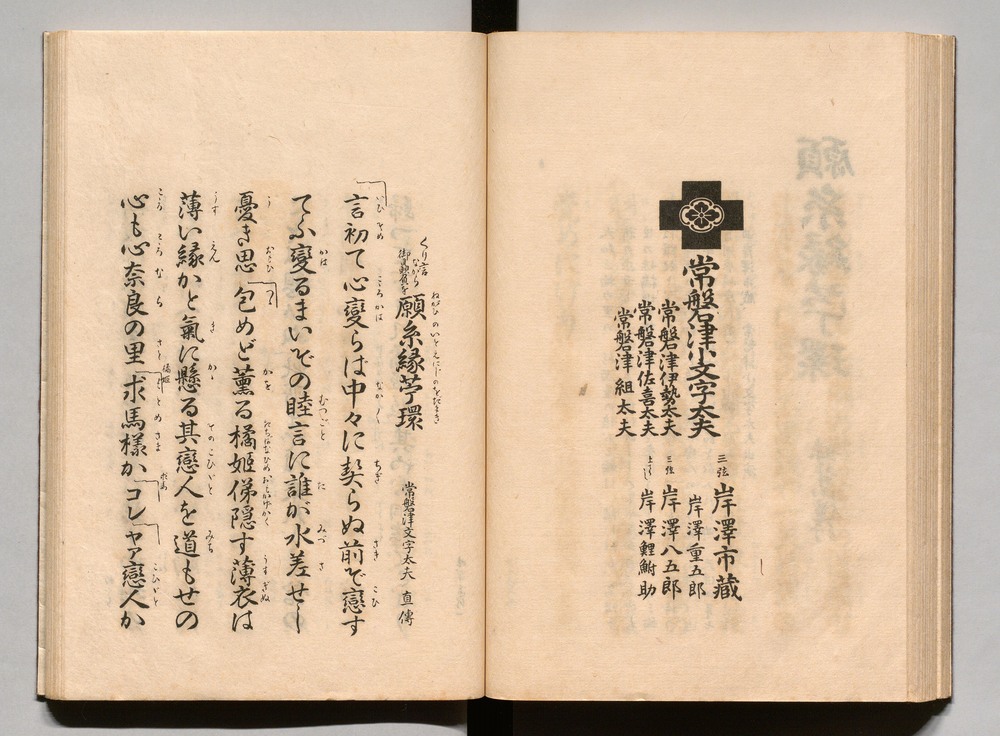 常磐津小文字太夫
常磐津伊勢太夫
常磐津佐喜太夫
常磐津組太夫
三弦 岸澤市藏
岸澤重五郎
三弦 岸澤八五郎
上てうし 岸澤鯉鮒助
くり言ながら御贔負を 願糸縁苧環 常磐津文字太夫 直傳
ねがひのいとえにしのをだまき
言初て心變らは中々に契らぬ前で戀す
てふ變るまいぞの睦言に誰が水差せし
憂き思 包めど薫る橘姫俤隠す薄衣は
薄い縁かと氣に懸る其戀人を道もせの
心も心奈良の里 求馬様か コレ ヤア戀人か